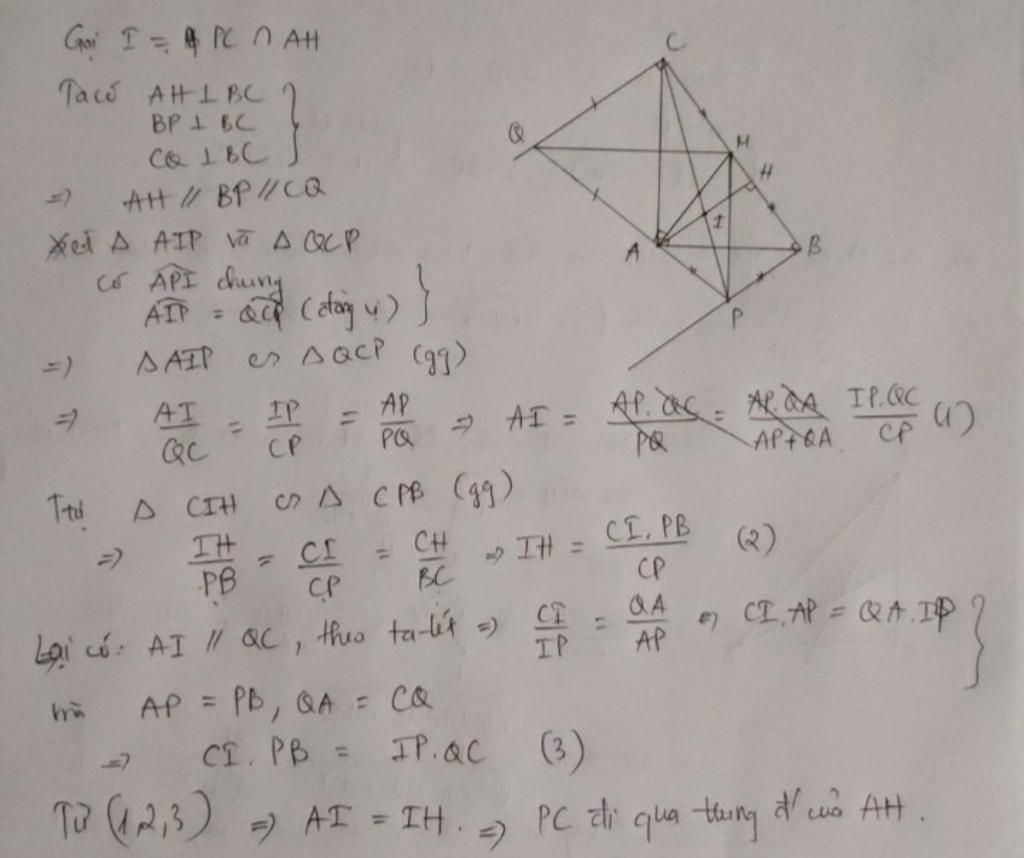 Gọi I = PC ∩ AH
Ta có AH ⊥ BC
BP ⊥ BC
CQ ⊥ BC
=> AH // BP // CQ
Xét Δ AIP và Δ QCP
có ÂPI chung
AIP = QCP (đồng vị)
=> Δ AIP ∽ Δ QCP (gg)
=> AI/QC = IP/CP = AP/PQ => AI = AP.QC/PQ = AP.QA/AP+QA IP.QC/CP (1)
Ttự Δ CIH ∽ Δ CPB (gg)
=> IH/PB = CI/CP = CH/BC => IH = CI.PB/CP (2)
Lại có: AI // QC, theo ta-lét => CI/IP = QA/AP => CI.AP = QA.IP
mà AP = PB, QA = CQ
=> CI.PB = IP.QC (3)
Từ (1,2,3) => AI = IH. => PC đi qua trung đ' của AH.
C
Q
M
H
I
A
B
P